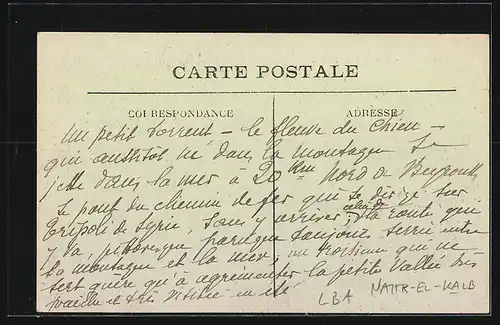 CARTE POSTALE
CORRESPONDANCE
ADRESSE
Un petit torrent - le fleuve du Chien -
qui aussitôt né dans la montagne se
jette dans la mer à 20 Km Nord de Beyrouth
Le pont du chemin de fer qui se dirige sur
Tripoli de Syrie, sans y arriver, la route qui
y va, pittoresque parce que toujours serrée entre
la montagne et la mer, un qui ne
sert guère qu'à agrémenter la petite vallée très
fraîche et très visitée en été
LBA
NAHR-EL-KALB